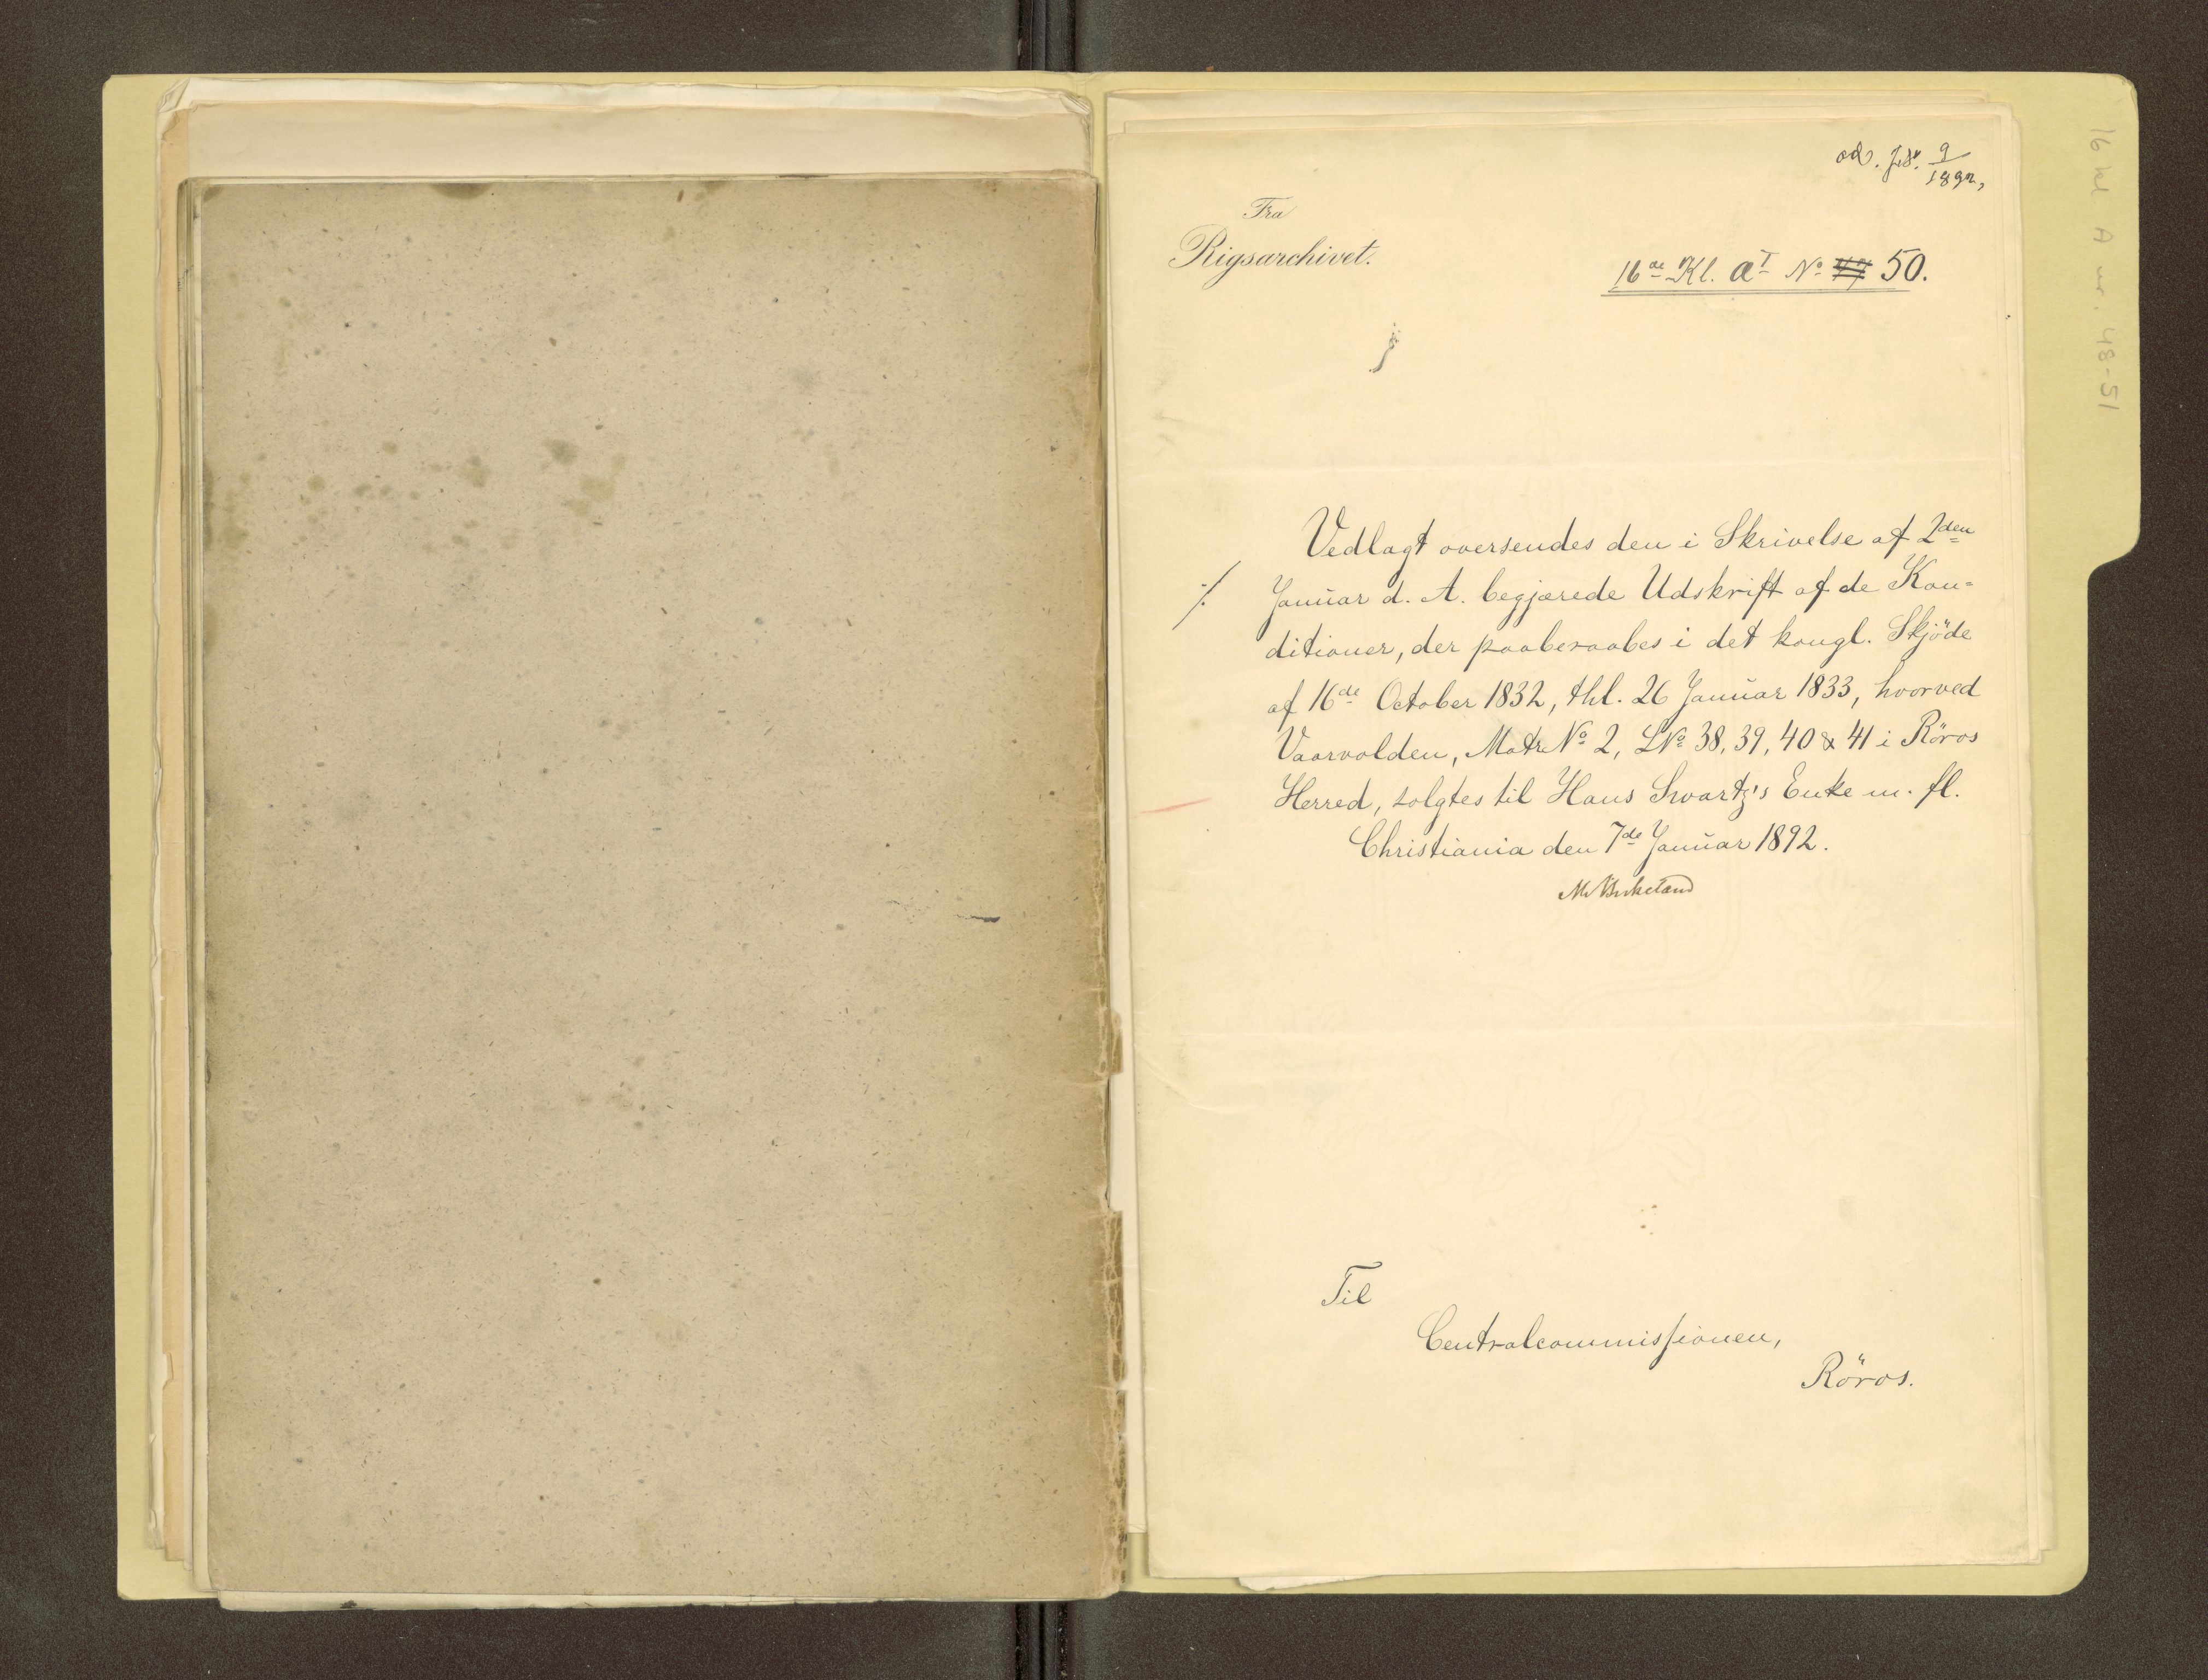 Fra
Rigsarchivet.
9
1892,
16de Kl. aI No 50.
Vedlagt oversendes den i Skrivelse af 2den
Januar d. A. begjærede Udskrift af de Kon=
ditioner, der paaberaabes i det kongl. Skjöde
af 16de October 1832, thl. 26 Januar 1833, hvorved
Vaarvolden, Matr No 2, LNo 38, 39, 40 & 41 i Röros
Herred, solgtes til Hans Swartz's Enke m. fl.
Christiania den 7de Januar 1892.
M Birkeland
Til
Centralcommissionen,
Röros.
16 kl A nr. 48-51